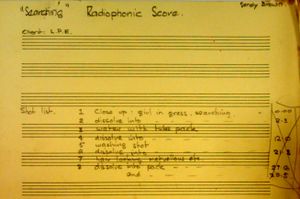 "Searching" Radiophonic Score.
Chart: L.P.E.
Shot list. 1 Close up: girl in grass, searching.
2 dissolve into
3 water with tube pack
4 dissolve into
5 washing shot
6 dissolve into
7 hair looking marvellous etc.
8 dissolve into pack
end